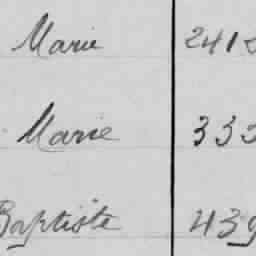 Marie 241
Marie 333
Baptiste 439